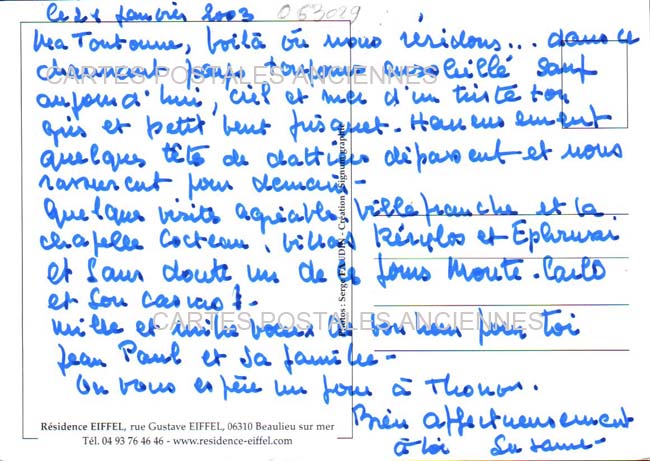 le 21 Janvier 2003 063029
Ma Toutoune, voilà où nous résidons... dans ce
charmant pays toujours ensoleillé sauf
CARTES POSTALES ANCIENNES
aujourd'hui, ciel et mer d'un triste ton
gris et petit vent frisquet. Heureusement
quelques tête de dattiers dépassent et nous
rassurent pour demain -
Quelque visites agréables Villefranche et la
chapelle Cocteau, villas Kérylos et Ephrussi
et sans doute un de ces jours Monte-Carlo
et son casino !.
CARTES POSTALES ANCIENNES
Mille et mille voeux de bonheur pour toi
Jean Paul et sa famille -
On vous espère un jour à Thonon.
Bien affectueusement
à toi Suzanne -
Photos : Serge - Création : Signumgraphie
Résidence EIFFEL, rue Gustave EIFFEL, 06310 Beaulieu sur mer
Tél. 04 93 76 46 46 - www.residence-eiffel.com